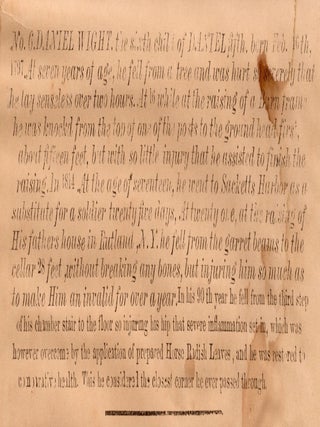 No. 6. DANIEL WIGHT. the sixth child of DANIEL fifth, born Feb. 15th,
1797. At seven years of age, he fell from a tree and was hurt so severely that
he lay senseless over two hours. At 16 while at the raising of a Barn frame
he was knocked from the top of one of the posts to the ground head first,
about fifteen feet, but with so little injury that he assisted to finish the
raising. In 1814 At the age of seventeen, he went to Sacketts Harbor as a
substitute for a soldier twenty five days, At twenty one, at the raising of
His fathers house in Rutland N.Y. he fell from the garret beams to the
cellar 28 feet without breaking any bones, but injuring him so much as
to make Him an invalid for over a year. In his 90 th year he fell from the third step
of his chamber stair to the floor so injuring his hip that severe inflammation set in, which was
however overcome by the application of prepared Horse Radish Leaves, and he was restored to
comparative health. This he considered the closest corner he ever passed through.